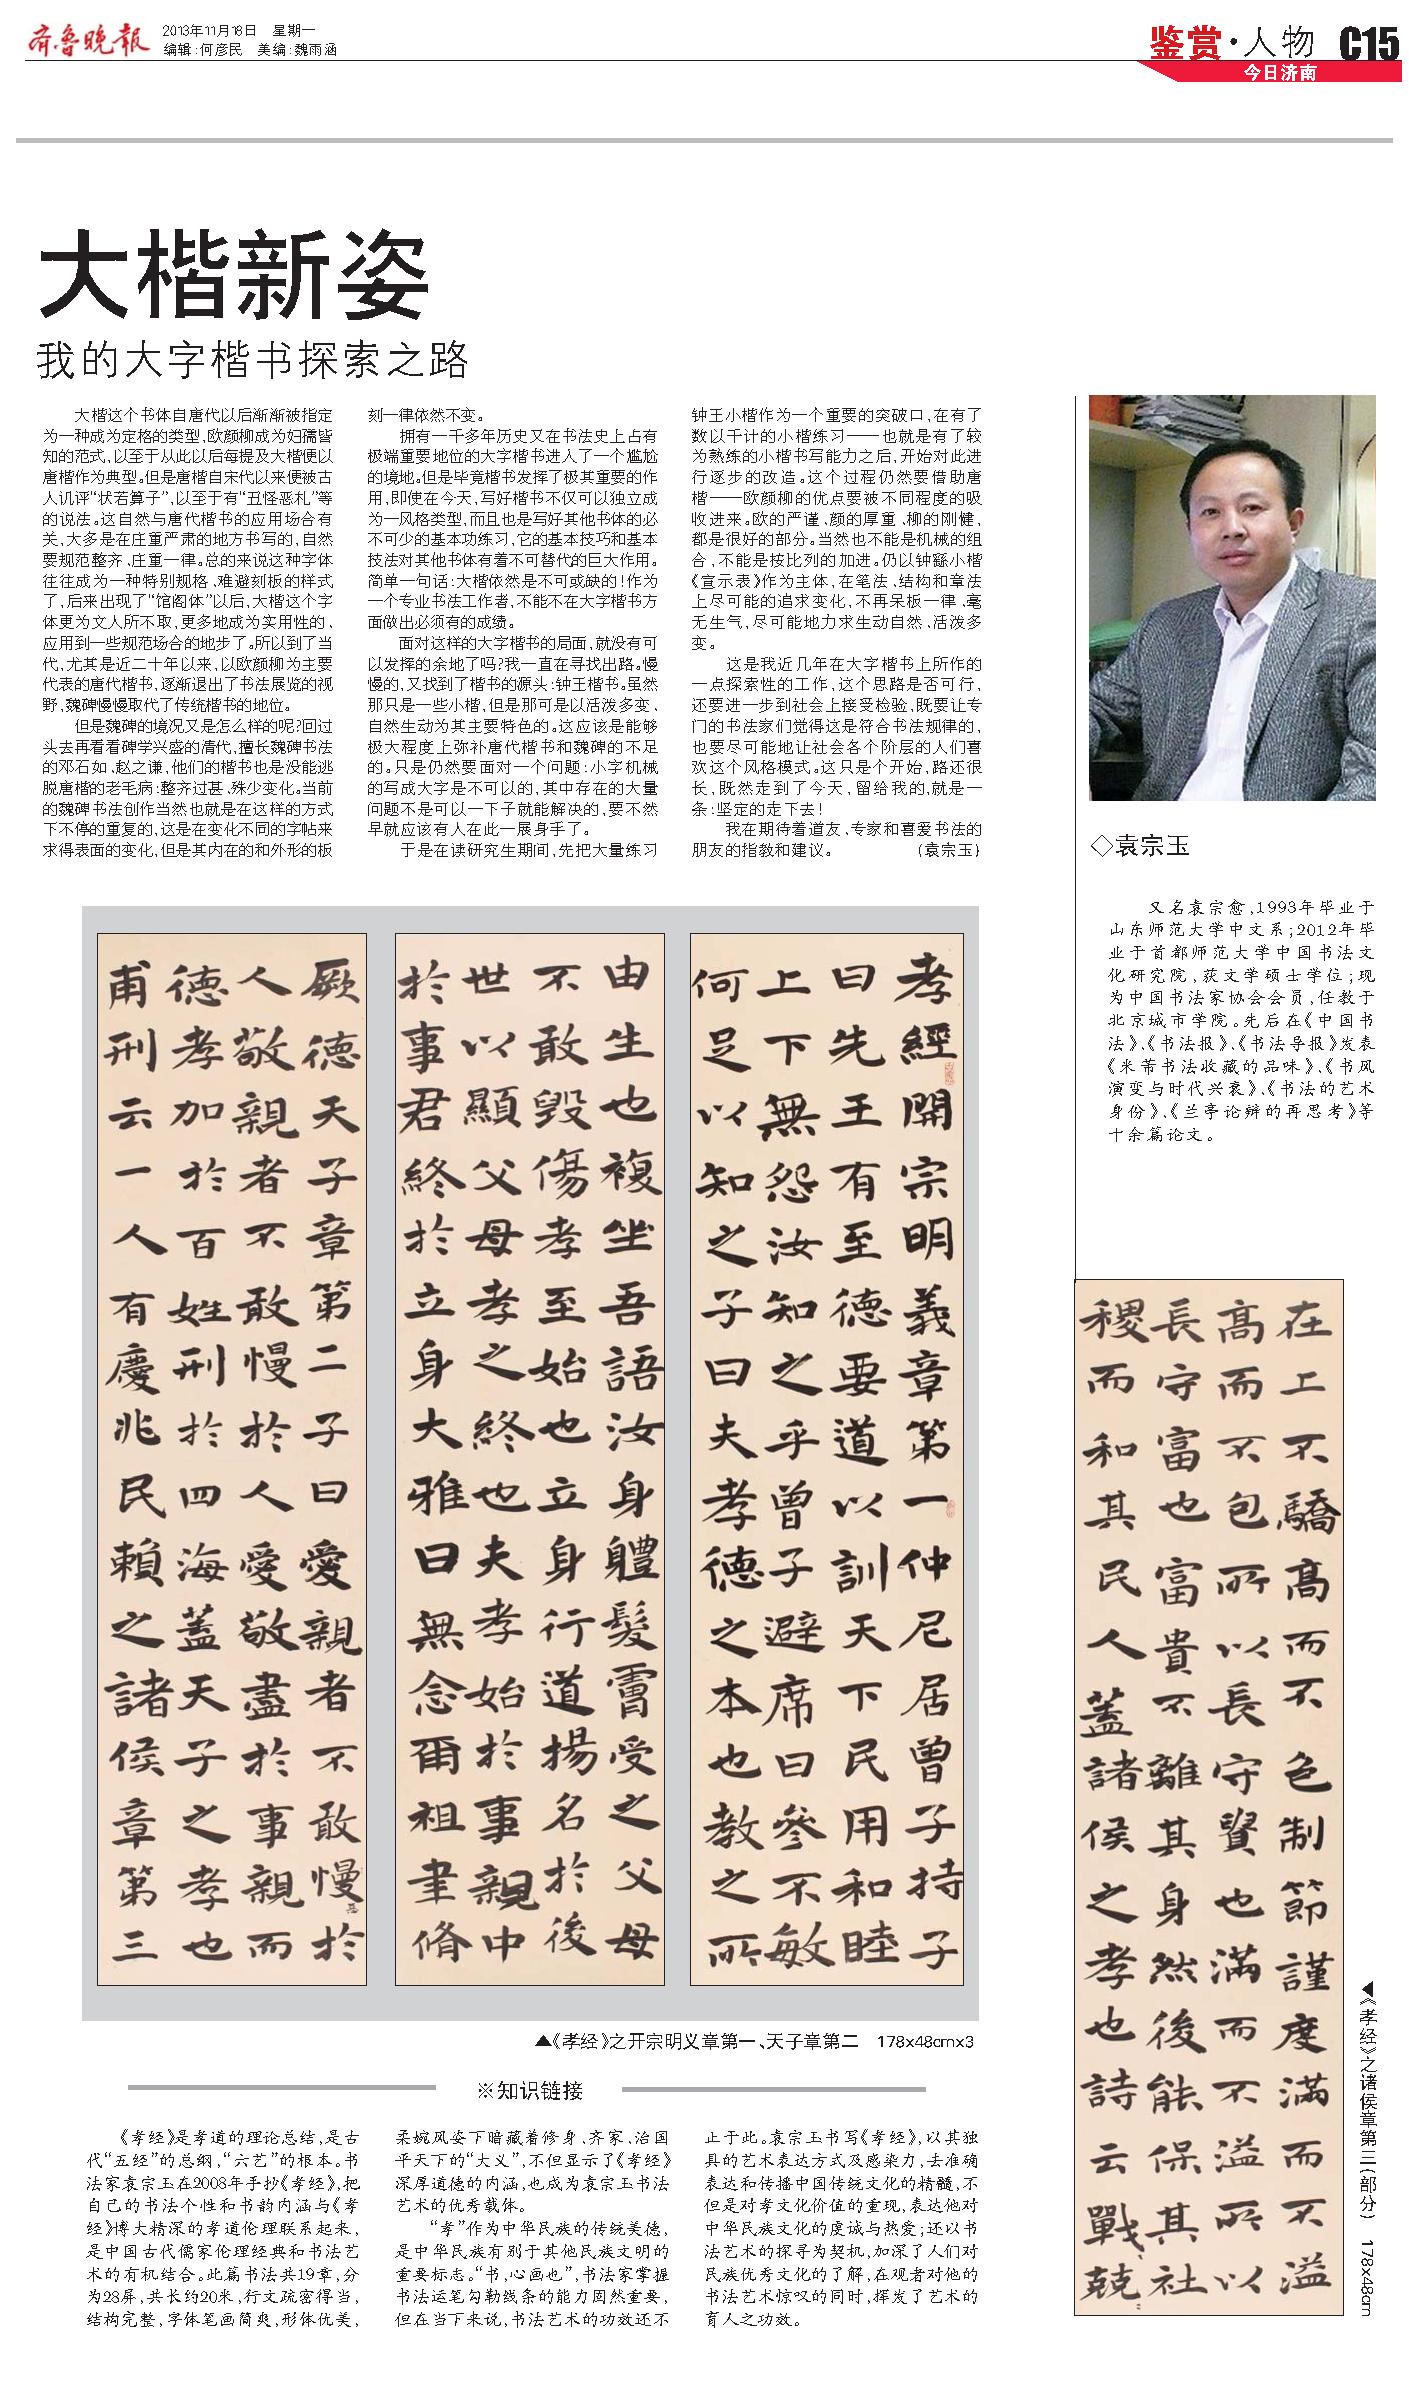 齐鲁晚报
2013年11月18日 星期一
编辑:何彦民 美编:魏雨涵
鉴赏·人物 C15
今日济南
大楷新姿
我的大字楷书探索之路
大楷这个书体自唐代以后渐渐被指定
为一种成为定格的类型,欧颜柳成为妇孺皆
知的范式,以至于从此以后每提及大楷便以
唐楷作为典型。但是唐楷自宋代以来便被古
人讥评“状若算子”,以至于有“丑怪恶札”等
的说法。这自然与唐代楷书的应用场合有
关,大多是在庄重严肃的地方书写的,自然
要规范整齐、庄重一律。总的来说这种字体
往往成为一种特别规格、难避刻板的样式
了,后来出现了“馆阁体”以后,大楷这个字
体更为文人所不取,更多地成为实用性的、
应用到一些规范场合的地步了。所以到了当
代,尤其是近二十年以来,以欧颜柳为主要
代表的唐代楷书,逐渐退出了书法展览的视
野,魏碑慢慢取代了传统楷书的地位。
但是魏碑的境况又是怎么样的呢?回过
头去再看看碑学兴盛的清代,擅长魏碑书法
的邓石如、赵之谦,他们的楷书也是没能逃
脱唐楷的老毛病:整齐过甚、殊少变化。当前
的魏碑书法创作当然也就是在这样的方式
下不停的重复的,这是在变化不同的字帖来
求得表面的变化,但是其内在的和外形的板
刻一律依然不变。
拥有一千多年历史又在书法史上占有
极端重要地位的大字楷书进入了一个尴尬
的境地。但是毕竟楷书发挥了极其重要的作
用,即使在今天,写好楷书不仅可以独立成
为一风格类型,而且也是写好其他书体的必
不可少的基本功练习,它的基本技巧和基本
技法对其他书体有着不可替代的巨大作用。
简单一句话:大楷依然是不可或缺的!作为
一个专业书法工作者,不能不在大字楷书方
面做出必须有的成绩。
面对这样的大字楷书的局面,就没有可
以发挥的余地了吗?我一直在寻找出路。慢
慢的,又找到了楷书的源头:钟王楷书。虽然
那只是一些小楷,但是那可是以活泼多变、
自然生动为其主要特色的。这应该是能够
极大程度上弥补唐代楷书和魏碑的不足
的。只是仍然要面对一个问题:小字机械
的写成大字是不可以的,其中存在的大量
问题不是可以一下子就能解决的,要不然
早就应该有人在此一展身手了。
于是在读研究生期间,先把大量练习
钟王小楷作为一个重要的突破口,在有了
数以千计的小楷练习——也就是有了较
为熟练的小楷书写能力之后,开始对此进
行逐步的改造。这个过程仍然要借助唐
楷——欧颜柳的优点要被不同程度的吸
收进来。欧的严谨、颜的厚重、柳的刚健,
都是很好的部分。当然也不能是机械的组
合,不能是按比列的加进。仍以钟繇小楷
《宣示表》作为主体,在笔法、结构和章法
上尽可能的追求变化,不再呆板一律、毫
无生气,尽可能地力求生动自然、活泼多
变。
这是我近几年在大字楷书上所作的
一点探索性的工作,这个思路是否可行,
还要进一步到社会上接受检验,既要让专
门的书法家们觉得这是符合书法规律的,
也要尽可能地让社会各个阶层的人们喜
欢这个风格模式。这只是个开始,路还很
长,既然走到了今天,留给我的,就是一
条:坚定的走下去!
我在期待着道友、专家和喜爱书法的
朋友的指教和建议。 (袁宗玉)
◇袁宗玉
又名袁宗愈,1993年毕业于
山东师范大学中文系;2012年毕
业于首都师范大学中国书法文
化研究院,获文学硕士学位;现
为中国书法家协会会员,任教于
北京城市学院。先后在《中国书
法》、《书法报》、《书法导报》发表
《米芾书法收藏的品味》、《书风
演变与时代兴衰》、《书法的艺术
身份》、《兰亭论辨的再思考》等
十余篇论文。
孝經開宗明義章第一仲尼居曾子持子
曰先王有至德要道以訓天下民用和睦
上下無怨汝知之乎曾子避席曰參不敏
何足以知之子曰夫孝德之本也教之所
由生也複坐吾語汝身體髮膚受之父母
不敢毀傷孝至始也立身行道揚名於後
世以顯父母孝之終也夫孝始於事親中
於事君終於立身大雅曰無念爾祖聿脩
厥德天子章第二子曰愛親者不敢慢於
人敬親者不敢慢於人愛敬盡於事親而
德孝加於百姓刑於四海蓋天子之孝也
甫刑云一人有慶兆民賴之諸侯章第三
▲《孝经》之开宗明义章第一、天子章第二 178x48cmx3
在上不驕高而不危制節謹度滿而不溢
高而不危所以長守貴也滿而不溢所以
長守富也富貴不離其身然後能保其社
稷而和其民人蓋諸侯之孝也詩云戰戰兢兢
▲《孝经》之诸侯章第三(部分) 178x48cm
※知识链接
《孝经》是孝道的理论总结,是古
代“五经”的总纲,“六艺”的根本。书
法家袁宗玉在2008年手抄《孝经》,把
自己的书法个性和书韵内涵与《孝
经》博大精深的孝道伦理联系起来,
是中国古代儒家伦理经典和书法艺
术的有机结合。此篇书法共19章,分
为28屏,共长约20米,行文疏密得当,
结构完整,字体笔画简爽,形体优美,
柔婉风姿下暗藏着修身、齐家、治国
平天下的“大义”,不但显示了《孝经》
深厚道德的内涵,也成为袁宗玉书法
艺术的优秀载体。
“孝”作为中华民族的传统美德,
是中华民族有别于其他民族文明的
重要标志。“书,心画也”,书法家掌握
书法运笔勾勒线条的能力固然重要,
但在当下来说,书法艺术的功效还不
止于此。袁宗玉书写《孝经》,以其独
具的艺术表达方式及感染力,去准确
表达和传播中国传统文化的精髓,不
但是对孝文化价值的重现,表达他对
中华民族文化的虔诚与热爱;还以书
法艺术的探寻为契机,加深了人们对
民族优秀文化的了解,在观者对他的
书法艺术惊叹的同时,挥发了艺术的
育人之功效。